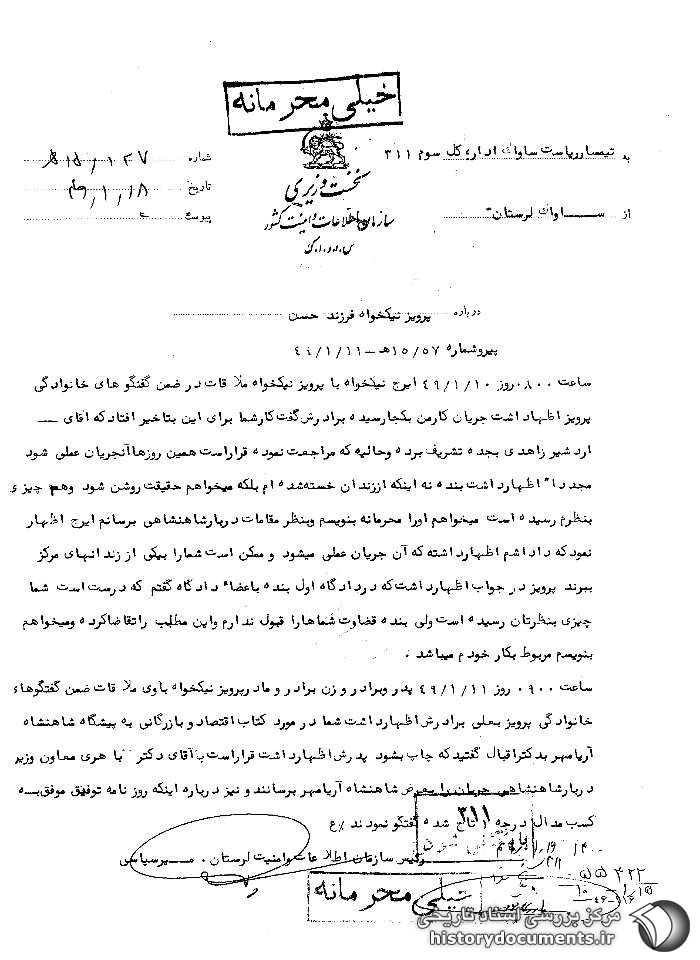 خیلی محرمانه
به تیمسار ریاست ساواک اداره کل سوم ۳۱۱
شماره ۱۵/۱۲۷
نخست وزیری
تاریخ
از ســـاواک لرستان
سازمان اطلاعات و امنیت کشور
پیوست
س.ا.و.ا.ک
درباره پرویز نیکخواه فرزند حسن
پیرو شماره ۱۵/۵۷هـ-۴۹/۱/۱۱
ساعت ۰۸۰۰ روز ۴۹/۱/۱۰ ایرج نیکخواه با پرویز نیکخواه ملاقات در ضمن گفتگو های خانوادگی
پرویز اظهار داشت جریان کار من بکجا رسیده برادرش گفت کار شما برای این بتاخیر افتاد که آقای ــ
اردشیر زاهدی بجده تشریف برده و حالیه که مراجعت نموده قرار است همین روزها آنجریان عملی شود
مجددا" اظهار داشت بنده نه اینکه از زندان خسته شده ام بلکه میخواهم حقیقت روشن شود وهم چیزی
بنظرم رسیده است میخواهم اورا محرمانه بنویسم وبنظر مقامات دربار شاهنشاهی برسانم ایرج اظهار
نمود که داداشم اظهار داشته که آن جریان عملی میشود و ممکن است شمارا بیکی از زندانهای مرکز
ببرند پرویز در جواب اظهار داشت که در دادگاه اول بنده باعضاء دادگاه گفتم که درست است شما
چیزی بنظرتان رسیده است ولی بنده قضاوت شماهارا قبول ندارم واین مطلب را تقاضا کرده ومیخواهم
بنویسم مربوط بکار خودم میباشد .
ساعت ۰۹۰۰ روز ۴۹/۱/۱۱ پدر وبرادر و زن برادر و مادر پرویز نیکخواه باوی ملاقات ضمن گفتگوهای
خانوادگی پرویز بعلی برادرش اظهار داشت شما در مورد کتاب اقتصاد و بازرگانی به پیشگاه شاهنشاه
آریامهر بدکتر اقبال گفتید که چاپ بشود پدرش اظهار داشت قرار است با آقای دکتر باهری معاون وزیر
دربار شاهنشاهی جریان را بعرض شاهنشاه آریامهر برسانند و نیز درباره اینکه روز نامه توفیق موفق بــه
کسب مدال درجه ۱ تاج شده گفتگو نمودند /ع
۳۱۱
بایگانی شود
رئیس سازمان اطلاعات وامنیت لرستان .
خیلی محرمانه
مرکز بررسی اسناد تاریخی
historydocuments.ir